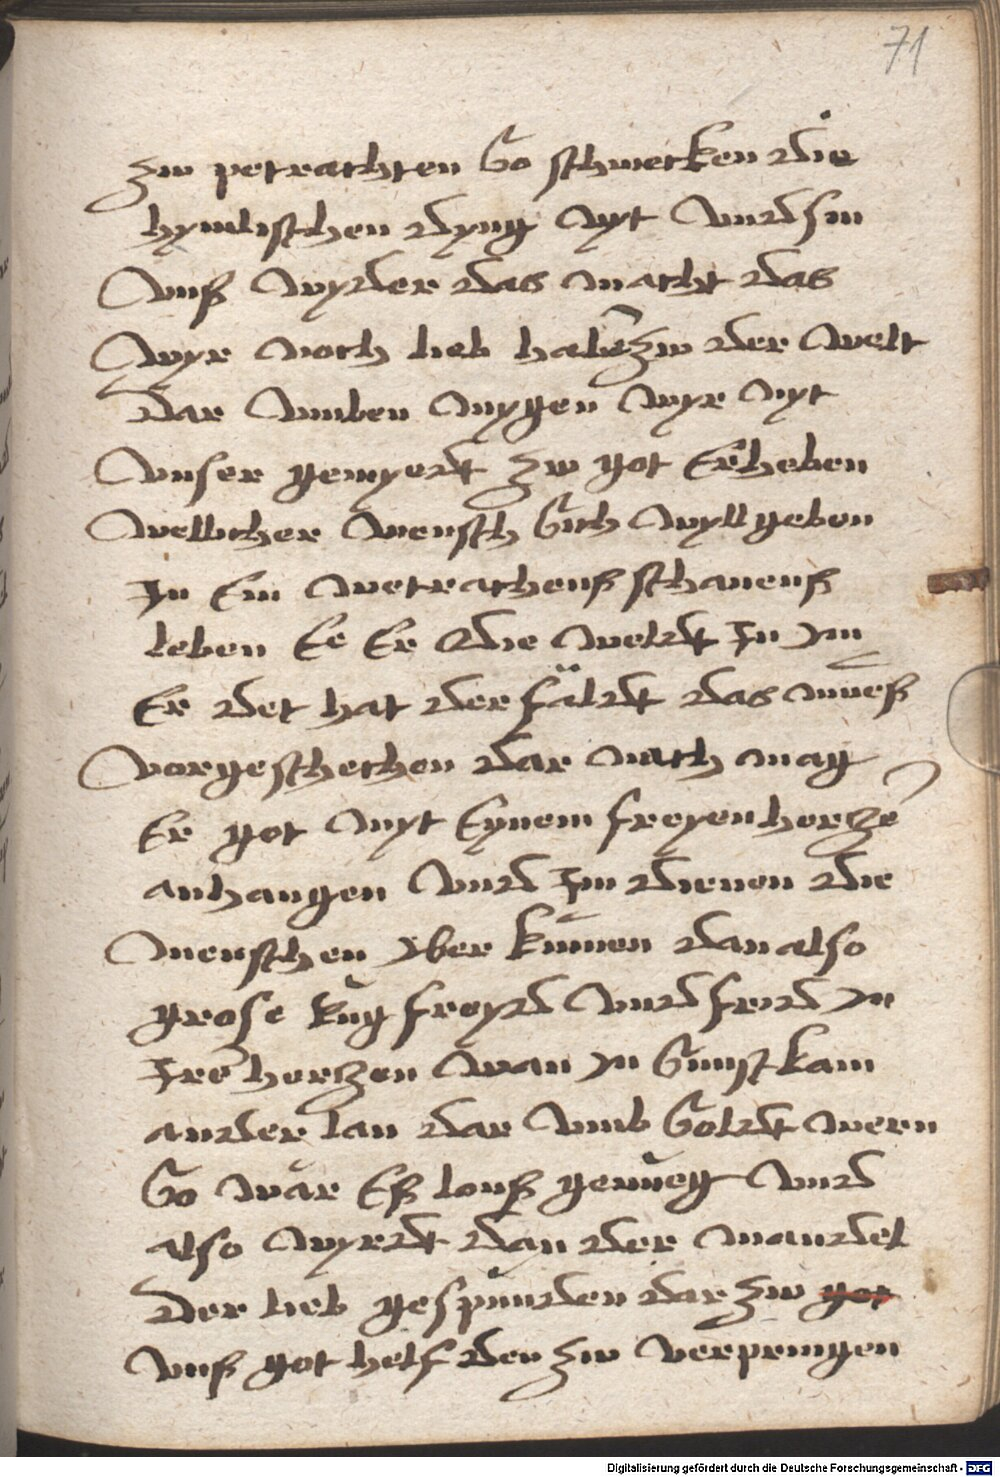 71
zw petrachten So schmecken die
hymlischen dyng nyt vnd sin
vnß wyder das macht das
wyr noch lieb habē zw der welt
dar vmben mygen wyr nyt
vnser gemyedt zw got Erheben
wellicher mensch sich wyll geben
in Ein wetrachenß schauenß
leben Ee Er die weldt in ym
Er det hat der fäldt das mueß
vor geschechen dar nach mag
Er got myt Eynem freyen herczē
anhangen vnd im dienen die
menschen yber kumen dan also
grose rug freyd vnd frid yn
irē herczen wan yn sunst kain
ander lan dar vmb soldt wern
So wär Eß lonß genueg vnd
also wyrdt dan der mandel
der lieb gespunden dar zw got
vnß got helf den zw verpringen
Digitalisierung gefördert durch die Deutsche Forschungsgemeinschaft - DFG